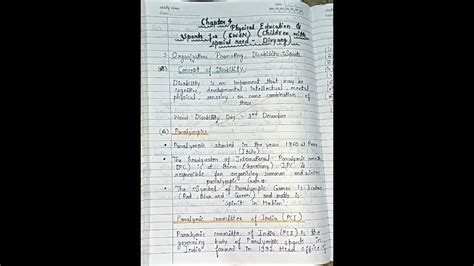 Chapter 4
Physical Education &
Sports for (CWSN) (Children with
special need - Divyang)
Organization Promoting Disability Sports
Concept of Disability
Disability is an impairment that may be
cognitive, developmental, intellectual, mental,
physical, sensory, or some combination of
these.
World Disability Day = 3rd December
Paralympics
Paralympic started in the year 1960 at Rome
(Italy).
The headquarter of International Paralympic
(IPC) is at Bonn (Germany). IPC is
responsible for organising summer and winter
paralympic Games.
The Symbol of Paralympic Games is
(Red, Blue and Green) and motto is
'Spirit in Motion'
Paralympic committee of India (PCI)
Paralympic committee of India (PCI) is the
governing body of Paralympic sports in
India formed in 1992. Head office of